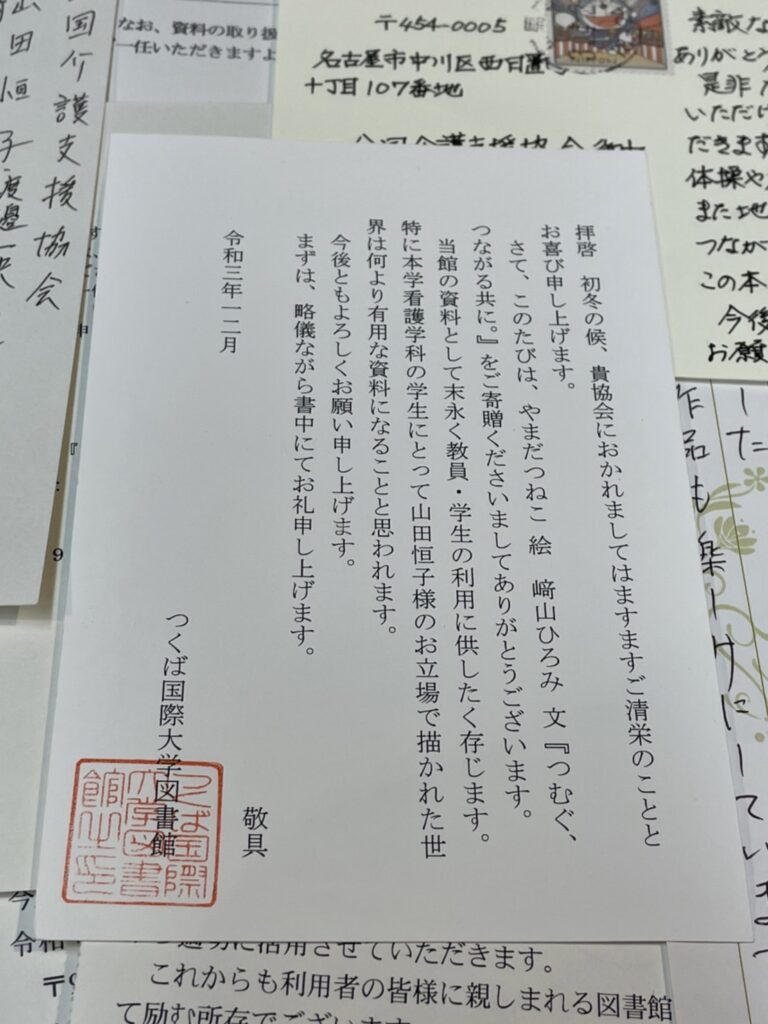 拝啓　初冬の候、貴協会におかれましてはますますご清栄のことと
お喜び申し上げます。
さて、このたびは、やまだつねこ　絵　﨑山ひろみ　文『つむぐ、
つながる共に。』をご寄贈くださいましてありがとうございます。
当館の資料として末永く教員・学生の利用に供したく存じます。
特に本学看護学科の学生にとって山田恒子様のお立場で描かれた世
界は何より有用な資料になることと思われます。
今後ともよろしくお願い申し上げます。
まずは、略儀ながら書中にてお礼申し上げます。
敬具
令和三年一二月
つくば国際大学図書館
つくば国際
大学図書
館之印
〒454-0005
名古屋市中川区西日置
十丁目107番地
なお、資料の取り扱
一任いただきますよ
国介護支援協会
山田恒子
素敵な
ありがとう
是非
いただけ
だきます
体操や
また地
つなが
この本
今後
お願
した
作品も
9
令和
〒
適切に活用させていただきます。
これからも利用者の皆様に親しまれる図書館
て励む所存でございます